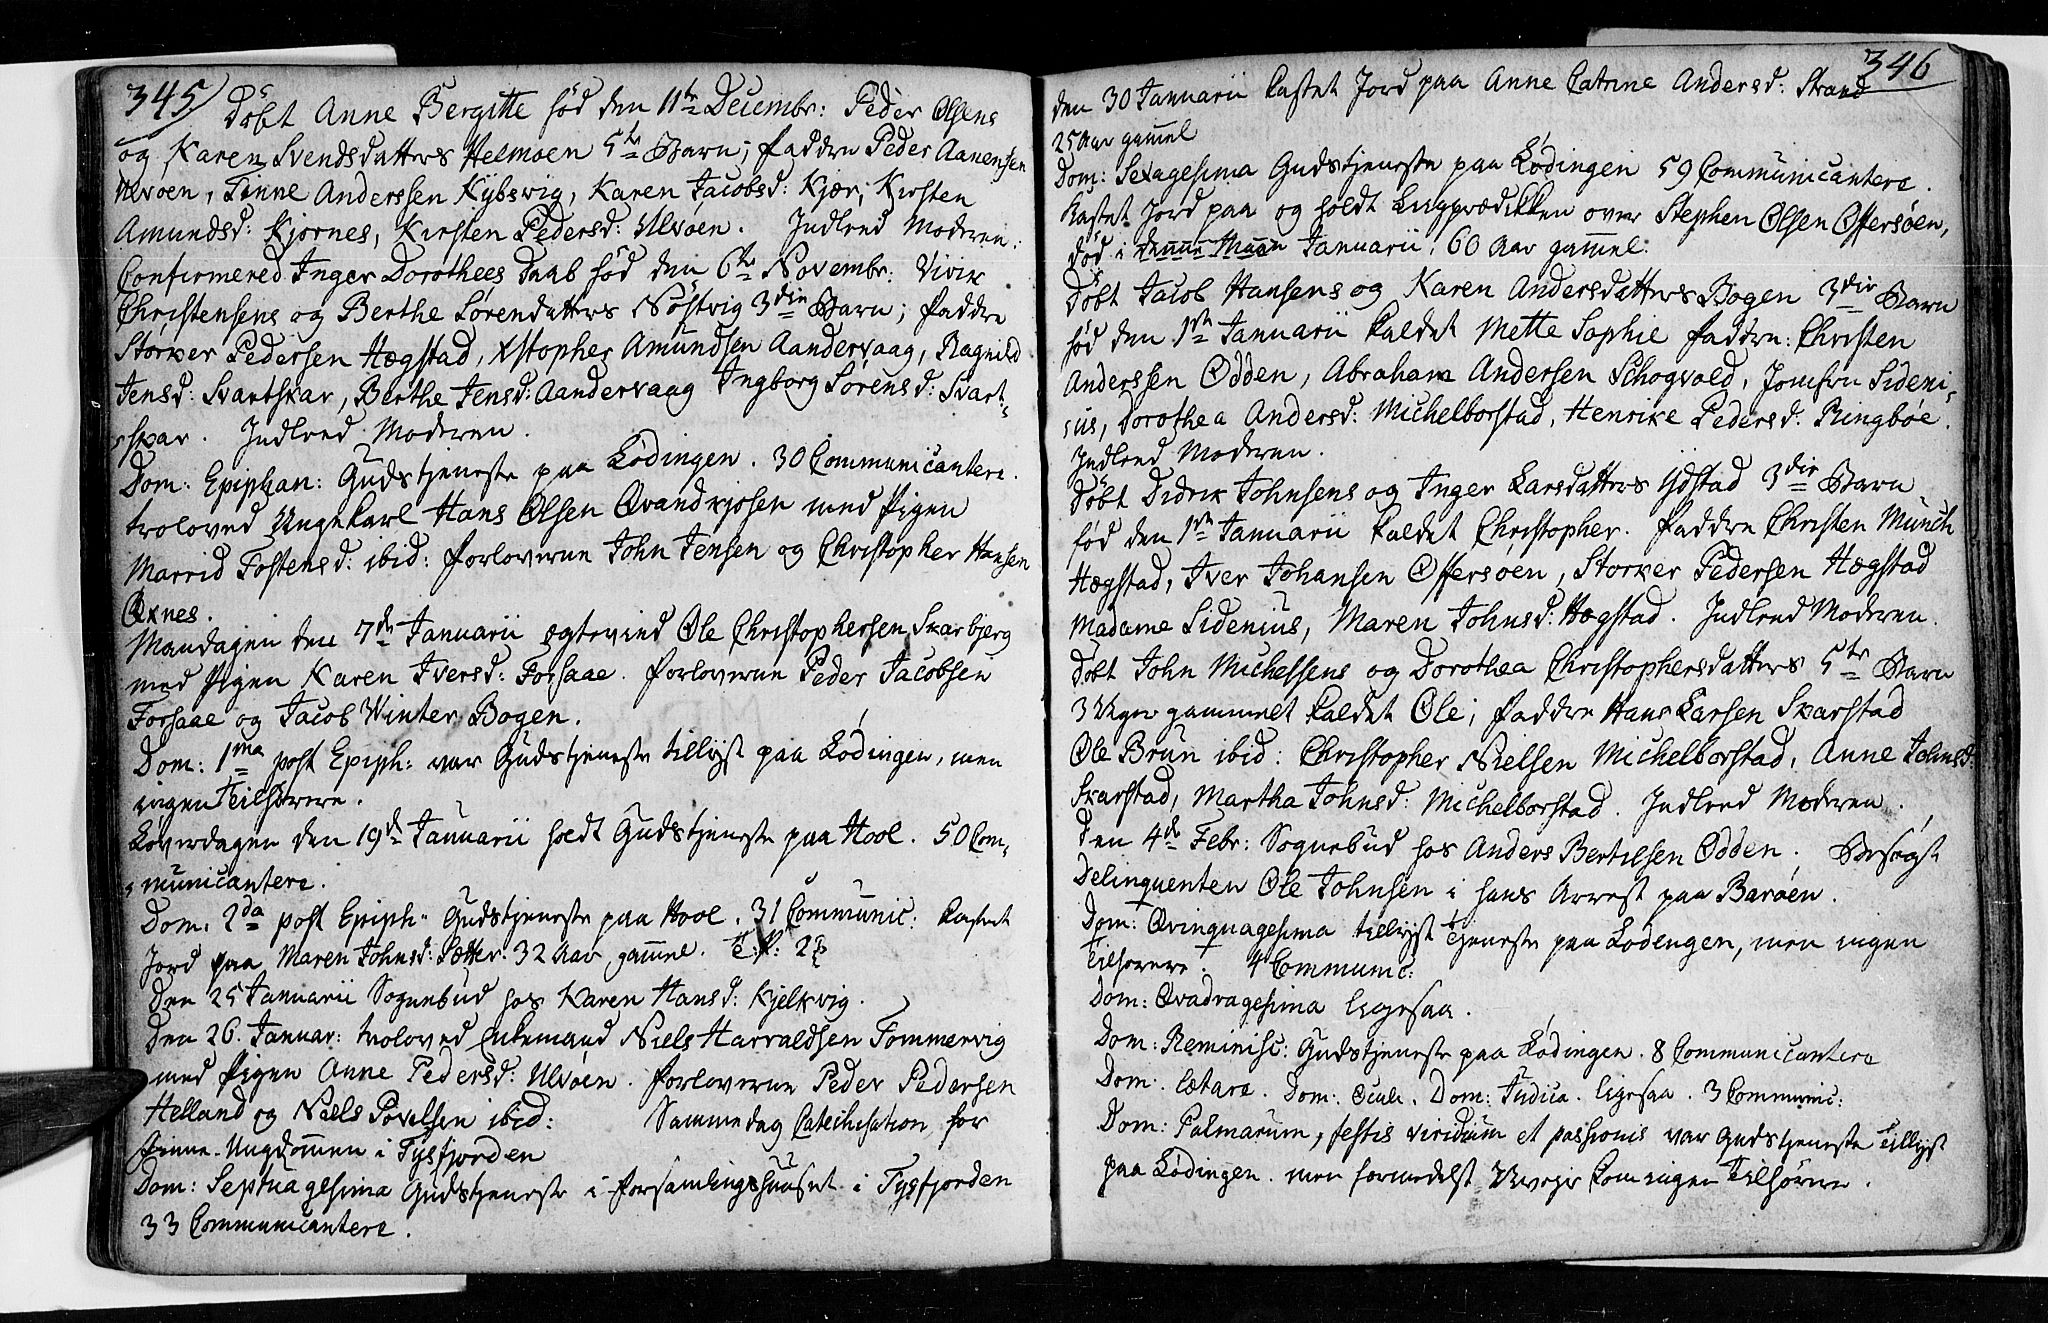 345
Døbt Anne Bergitte fød den 11te Decembr: Peder Olsens
og Karen Svendsdatters Helmoen 5te Barn; Faddre Peder Aanensen
Ulvøen, Finne Anderssen Kybsvig, Karen Jacobsd: Kjær, Kirsten
Amundsd: Kjørnes, Kirsten Pedersd: Ulvøen. Indleed Moderen.
Confirmered Inger Dorothees Daab fød den 6te Novembr: Vivik
Christensens og Berthe Sørendatters Nøstvig 3die Barn; Faddre
Storker Pedersen Hægstad, Xstopher Amundsen Aandervaag, Ragnild
Jensd: Svartskar, Berthe Jensd: Aandervaag Ingborg Sørensd: Svart-
skar. Indleed Moderen.
Dom: Epiphan: Gudstjeneste paa Lødingen. 30 Communicantere.
troloved Ungekarl Hans Olsen Qvandkjosen med Pigen
Marrid Tostensd: ibid: Forloverne John Jensen og Christopher Hansen
Oxnes.
Mandagen den 7de Januarii ægtevied Ole Christophersen Skarbjerg
med Pigen Karen Iversd: Forsaae. Forloverne Peder Jacobsen
Forsaae og Jacob Winter Bogen.
Dom: 1ma post Epiph: var Gudstjeneste tillyst paa Lødingen, men
ingen Tilhørere.
Løverdagen den 19de Januarii holdt Gudstjeneste paa Hool. 50 Com-
municantere.
Dom: 2da post Epiph: Gudstjeneste paa Hool. 31 Communic: Kastet
Jord paa Maren Johnsd: Sætter. 32 Aar gammel.
Den 25 Januarii Sognebud hos Karen Hansd: Kjelkvig.
Den 26. Januar: troloved Enkemand Niels Harraldsen Tømmervig
med Pigen Anne Pedersd: Ulvøen. Forloverne Peder Pedersen
Helland og Niels Povelsen ibid: Sammedag Catechisation for
Finne-Ungdommen i Tysfjorden
Dom: Septuagesima Gudstjeneste i Forsamlingshuuset i Tysfjorden
33 Communicantere.
346
den 30 Januarii Kastet Jord paa Anne Catrine Andersd: Strand
25 Aar gammel
Dom: Sexagesima Gudstjeneste paa Lødingen 59 Communicantere.
Kastet Jord paa og holdt Liigprædikken over Stephen Olsen Offersøen,
død i Januarii, 60 Aar gammel.
Døbt Jacob Hansens og Karen Andersdatters Bogen 3die Barn
fød den 1ste Januarii kaldet Mette Sophie Faddre: Christen
Anderssen Odden, Abraham Andersen Schogvold, Jomfru Sideni-
us, Dorothea Andersd: Michelborstad, Henrike Pedersd: Ringbøe.
Indleed Moderen.
Døbt Didrik Johnsens og Inger Larsdatters Ydstad 3die Barn
fød den 1ste Januarii kaldet Christopher. Faddre Christen Munch
Hægstad, Iver Johansen Offersøen, Storker Pedersen Hægstad
Madame Sidenius, Maren Johnsd: Hægstad. Indleed Moderen.
Døbt John Michelsens og Dorothea Christophersdatters 5te Barn
3 Uger gammelt kaldet Ole; Faddre Hans Larsen Skarstad
Ole Brun ibid: Christopher Nielsen Michelborstad, Anne Johnsd:
Skarstad, Martha Johnsd: Michelborstad. Indleed Moderen.
Den 4de Febr: Sognebud hos Anders Bertelsen Odden. Besøgt
Delinquenten Ole Johnsen i hans Arrest paa Barøen.
Dom: Qvinquagesima tillyst Tjeneste paa Lødengen, men ingen
Tilhørere. 4 Communic:
Dom: Qvadragesima ligesaa.
Dom: Reminisc: Gudstjeneste paa Lødingen. 8 Communicantere
Dom: Lætare. Dom: Oculi. Dom: Judica. ligesaa. 3 Communic:
Dom: Palmarum, festis viridium et passionis var Gudstjeneste tillyst
paa Lødingen. men formedelst Uveyr kom ingen Tilhørere.